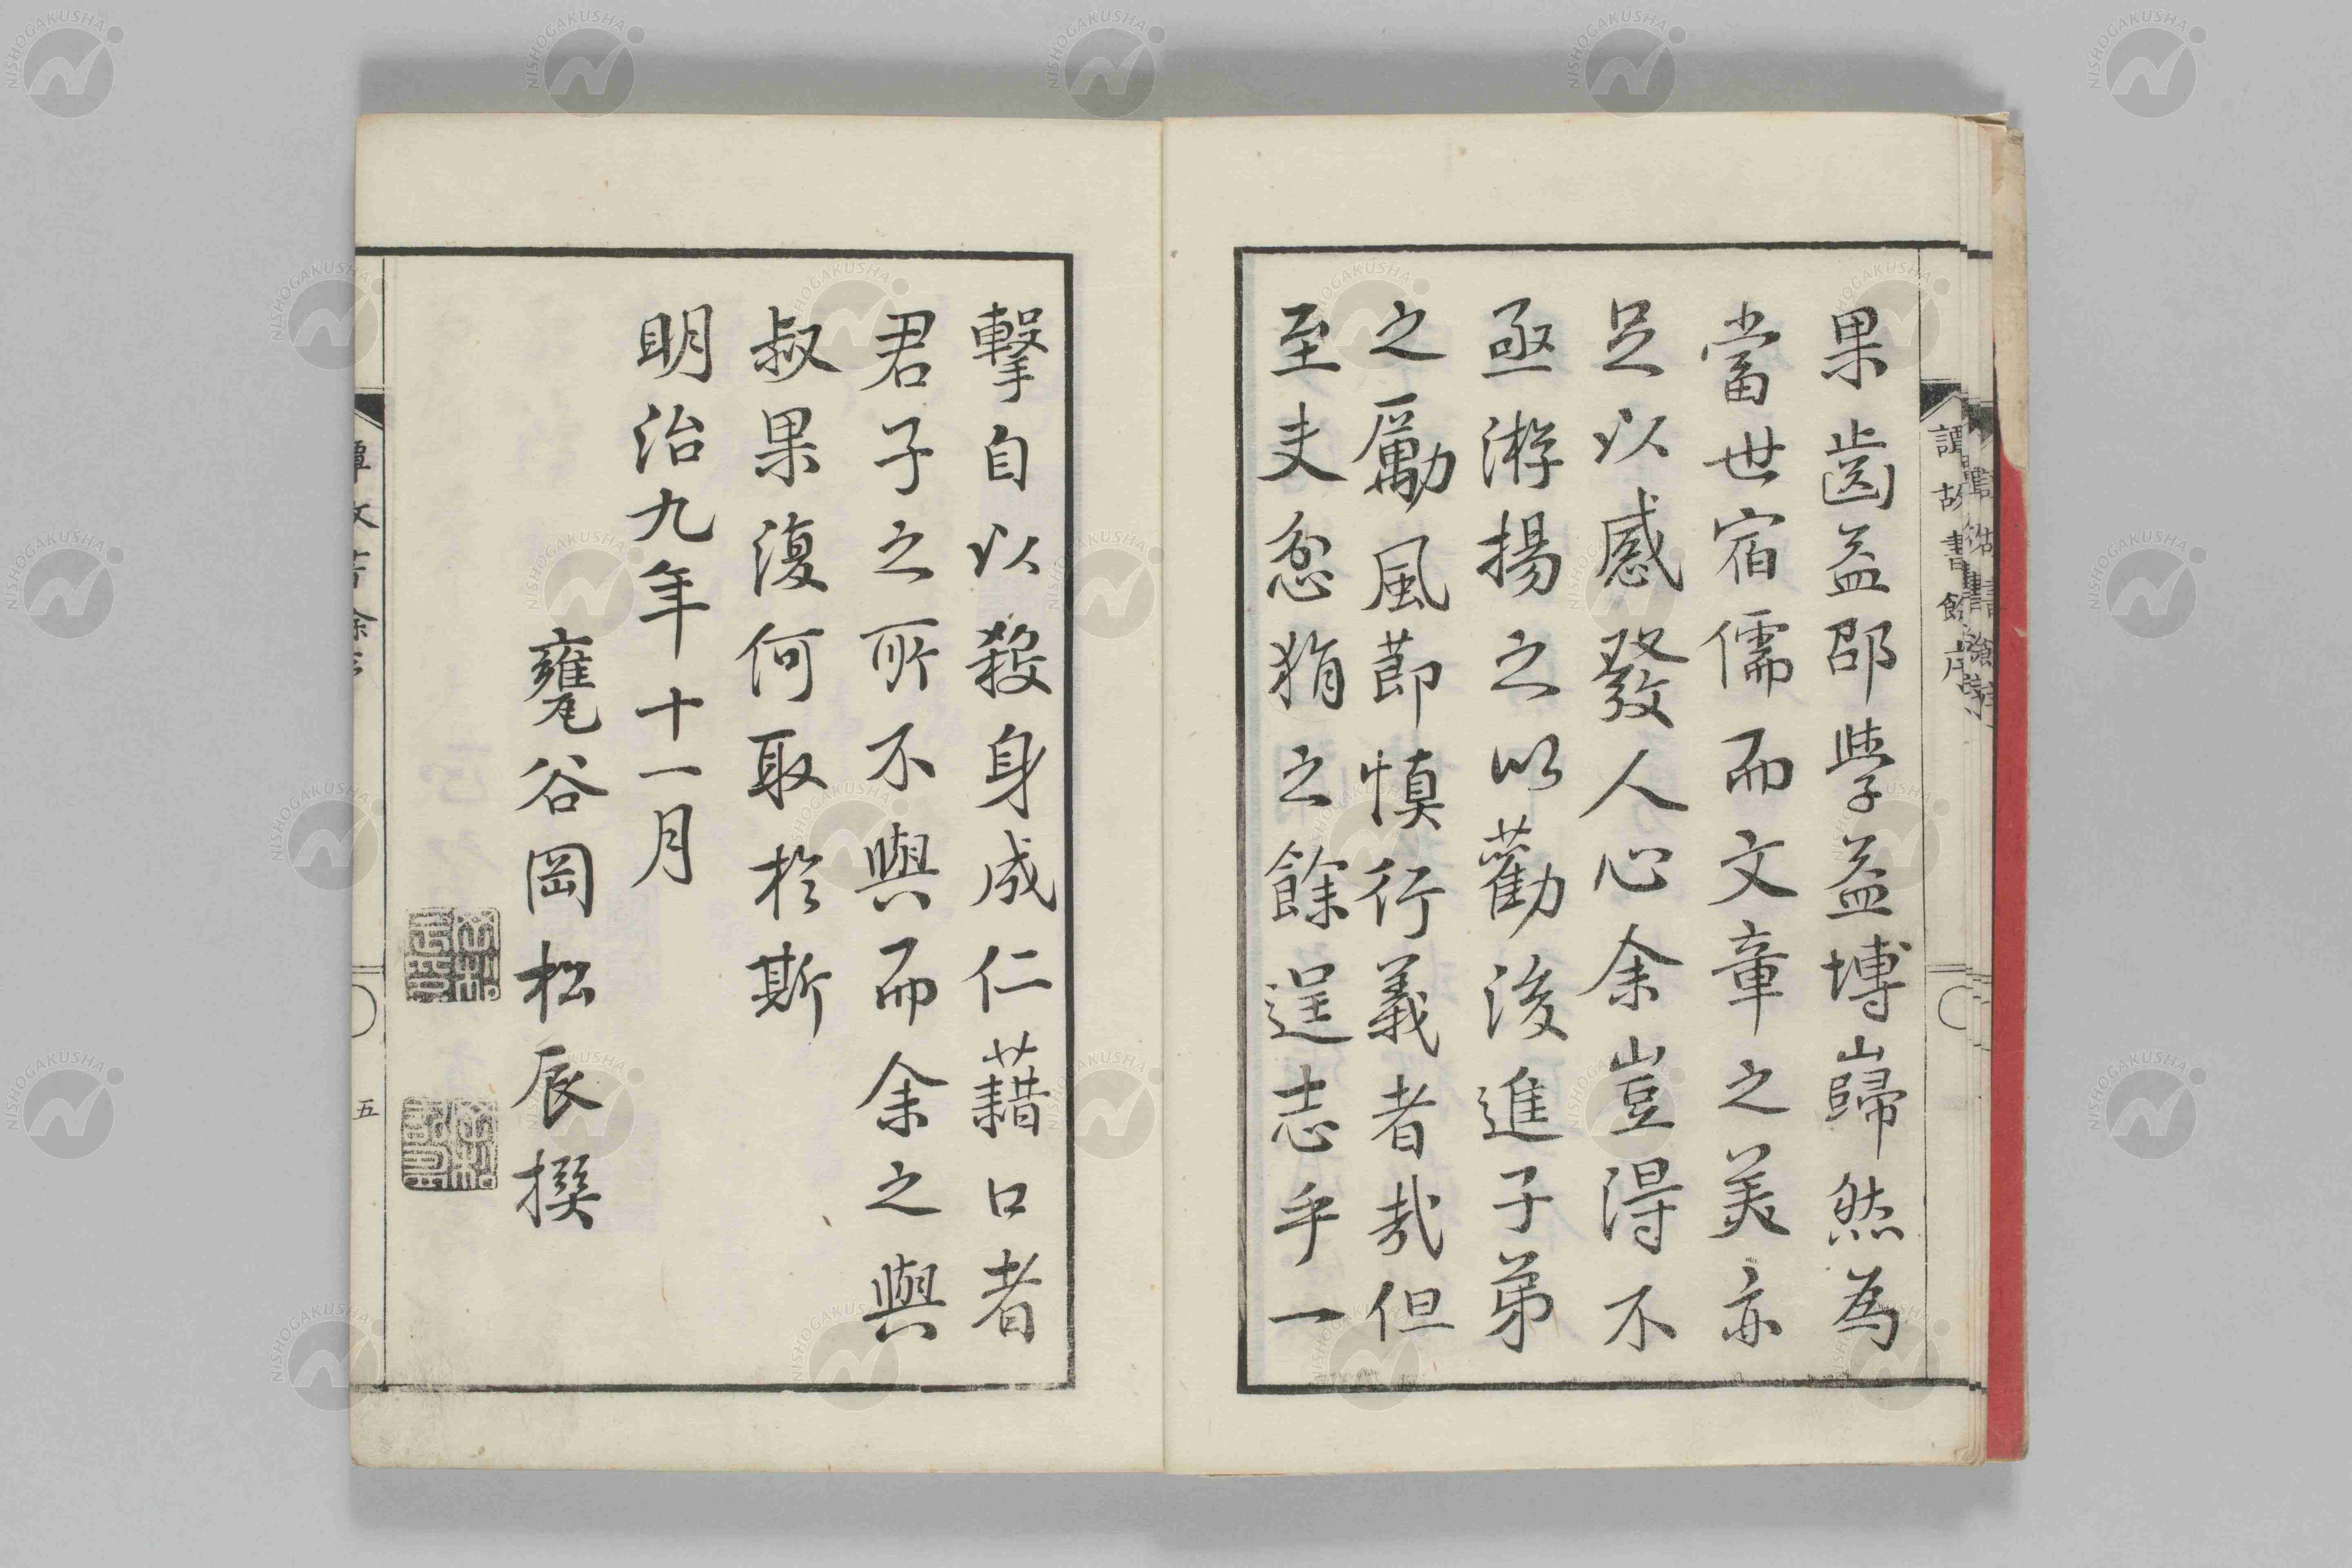 譚故書餘序
果齒益邵學益博巋然為
當世宿儒而文章之美亦
足以感發人心余豈得不
亟游揚之以勸後進子弟
之勵風節慎行義者哉但
至夫忿狷之餘逞志乎一
擊自以殺身成仁藉口者
君子之所不與而余之與
叔果復何取於斯
明治九年十一月
甕谷岡松辰撰
五
NISHOGAKUSHA